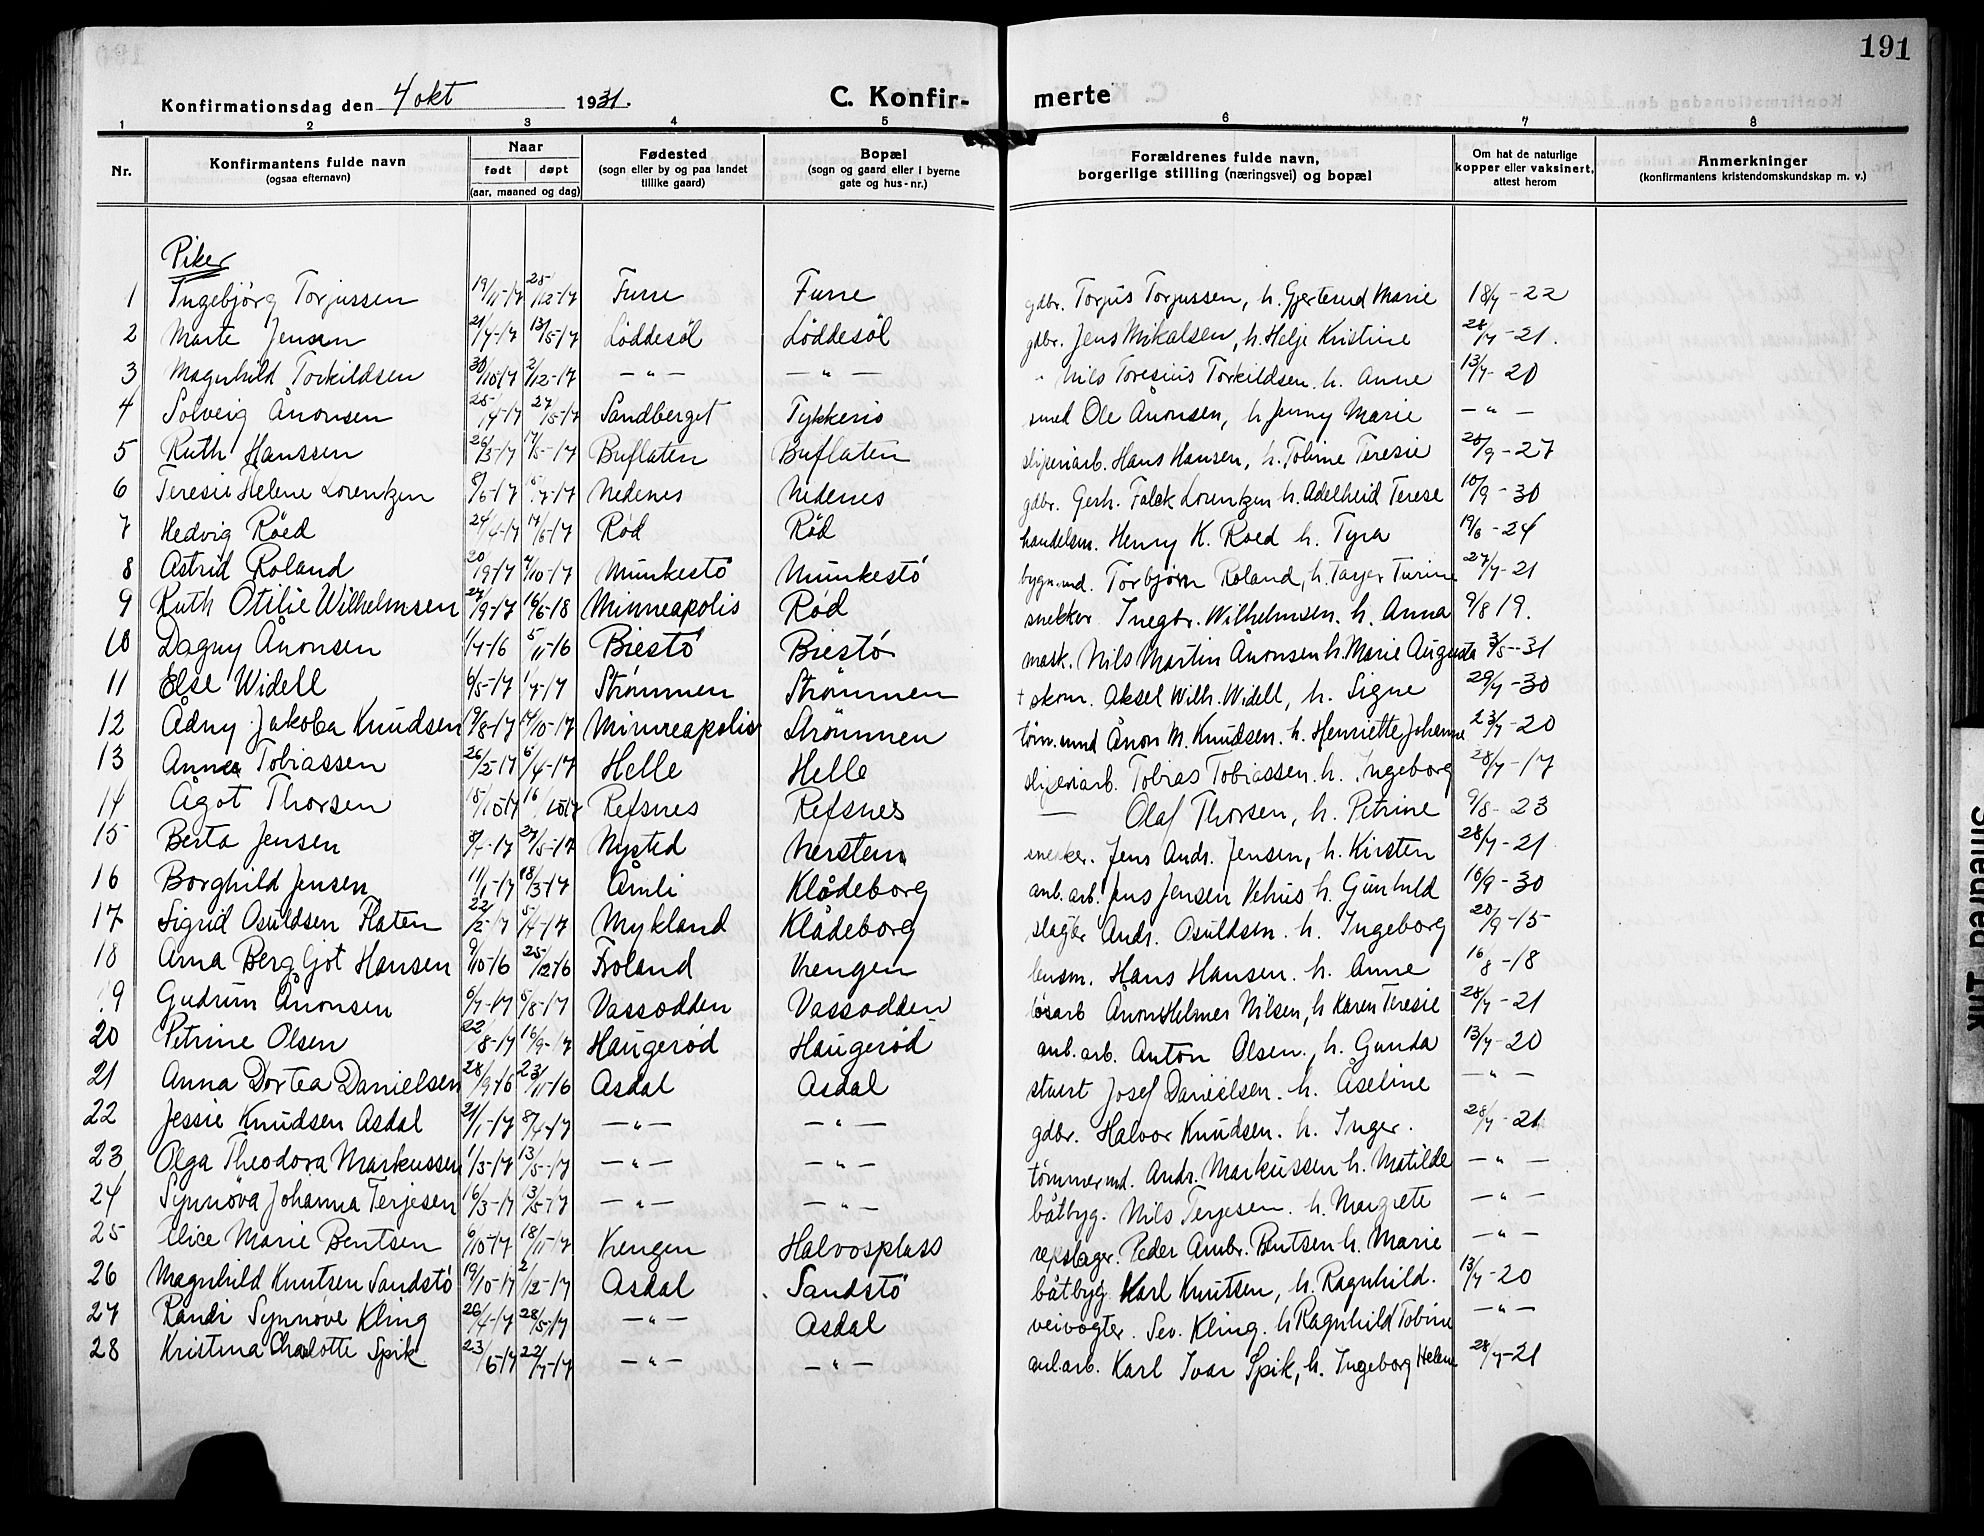 191
Konfirmationsdag den 4 okt 1931. C. Konfir- merte
1 2 3 4 5 6 7 8
Nr. Konfirmantens fulde navn (ogsaa efternavn) Naar født døpt (aar, maaned og dag) Fødested (sogn eller by og paa landet tillike gaard) Bopæl (sogn og gaard eller i byerne gate og hus-nr.) Forældrenes fulde navn, borgerlige stilling (næringsvei) og bopæl Om hat de naturlige kopper eller vaksinert, attest herom Anmerkninger (konfirmantens kristendomskundskap m. v.)
Piker
1 Ingebjörg Torjussen 19/11-17 25/12-17 Furre Furre gdbr. Torjus Torjussen, h. Gjertrud Marie 18/7-22
2 Marte Jensen 21/4-17 13/5-17 Löddesöl Löddesöl gdbr. Jens Mikalsen, h. Helje Kristine 28/7-21.
3 Magnhild Torkildsen 30/10-17 2/12-17 — " — — " — " Nils Toresius Torkildsen h. Anne 13/7-20
4 Solveig Ånonsen 25/4-17 27/5-17 Sandberget Tykkeris smed Ole Ånonsen, h Jenny Marie — " —
5 Ruth Hanssen 26/3-17 17/5-17 Buflaten Buflaten sliperiarb. Hans Hansen, h. Tobine Teresie 20/9-27
6 Teresie Helene Lorentzen 8/6-17 8/7-17 Nedenes Nedenes gdbr. Gerh. Falck Lorentzen h. Adelheid Terese 10/9-30
7 Hedvig Röed 24/4-17 17/6-17 Rød Rød handelsm. Henry K. Roed h. Tyra 19/6-24
8 Astrid Roland 20/9-17 4/10-17 Munkestö Munkestö bygn.md. Torbjørn Roland, h. Tarjer Turine 27/7-21
9 Ruth Otilie Wilhelmsen 27/9-17 16/6-18 Minneapolis Rød snekker Ingbr. Wilhelmsen. h. Anna 9/8 19.
10 Dagny Ånonsen 1/4-16 5/11-16 Biestö Biestö mask. Nils Martin Ånonsen h. Marie Augusta 3/5-31
11 Else Widell 6/5-17 1/7-17 Strømmen Strömmen + skom. Aksel Wilh. Widell, h. Signe 29/7-30
12 Ådny Jakoba Knudsen 19/8-17 14/10-17 Minneapolis Strömmen töm.mnd Ånon M. Knudsen. h. Henriette Johanne 23/7-20
13 Anna Tobiassen 26/2-17 6/4-17 Helle Helle sliperiarb. Tobias Tobiassen. h. Ingeborg 28/7-17
14 Ågot Thorsen 15/10-17 16/10-17 Refsnes Refsnes — Olaf Thorsen, h. Petrine 9/8-23
15 Berta Jensen 8/4-17 27/5-17 Nysted Nersten snekker. Jens Andr. Jensen, h. Kirsten 28/7-21.
16 Borghild Jensen 11/1-17 18/3-17 Åmli Klådeborg anl. arb. Jens Jensen Vehus h. Gunhild 16/9-30
17 Sigrid Osuldsen Flaten 22/2-17 5/4-17 Mykland Klådeborg slagter Andr. Osuldsen. h. Ingeborg 20/9-15
18 Arna Bergljot Hansen 9/10-16 25/12-16 Froland Vrengen lensm. Hans Hansen. h. Anne 16/8-18
19 Gudrun Ånonsen 6/7-17 5/8-17 Vassodden Vassodden løsarb Ånon Helmer Nilsen, h Karen Teresie 28/7-21
20 Petrine Olsen 22/8-17 16/9-17 Haugerød Haugerød anl. arb. Anton Olsen., h. Gunda 13/7-20
21 Anna Dortea Danielsen 28/9-16 23/11-16 Asdal Asdal stuert Josef Danielsen. h. Åseline — " —
22 Jessie Knudsen Asdal 21/1-17 8/4-17 — " — — " — gdbr. Halvor Knudsen. h. Inger. 28/7-21
23 Olga Theodora Markussen 1/3-17 13/5-17 — " — — " — tömmermd. Andr. Markussen h. Matilde — " —
24 Synnöva Johanna Terjesen 16/3-17 13/5-17 — " — — " — båtbyg. Nils Terjesen. h. Margrete — " —
25 Alice Marie Bentsen 6/10-17 18/11-17 Vrengen Halvosplass repslager. Peder Ambr. Bentsen h. Marie — " —
26 Magnhild Knutsen Sandstö 19/10-17 2/12-17 Asdal Sandstö båtbyg. Karl Knutsen, h. Ragnhild. 13/7-20
27 Randi Synnöve Kling 26/4-17 28/5-17 — " — Asdal veivogter. Sev. Kling. h Ragnhild Tobine — " —
28 Kristina Charlotte Spik 23/6-17 22/7-17 — " — — " — anl.arb. Karl Ivar Spik, h. Ingeborg Helene 28/7-21